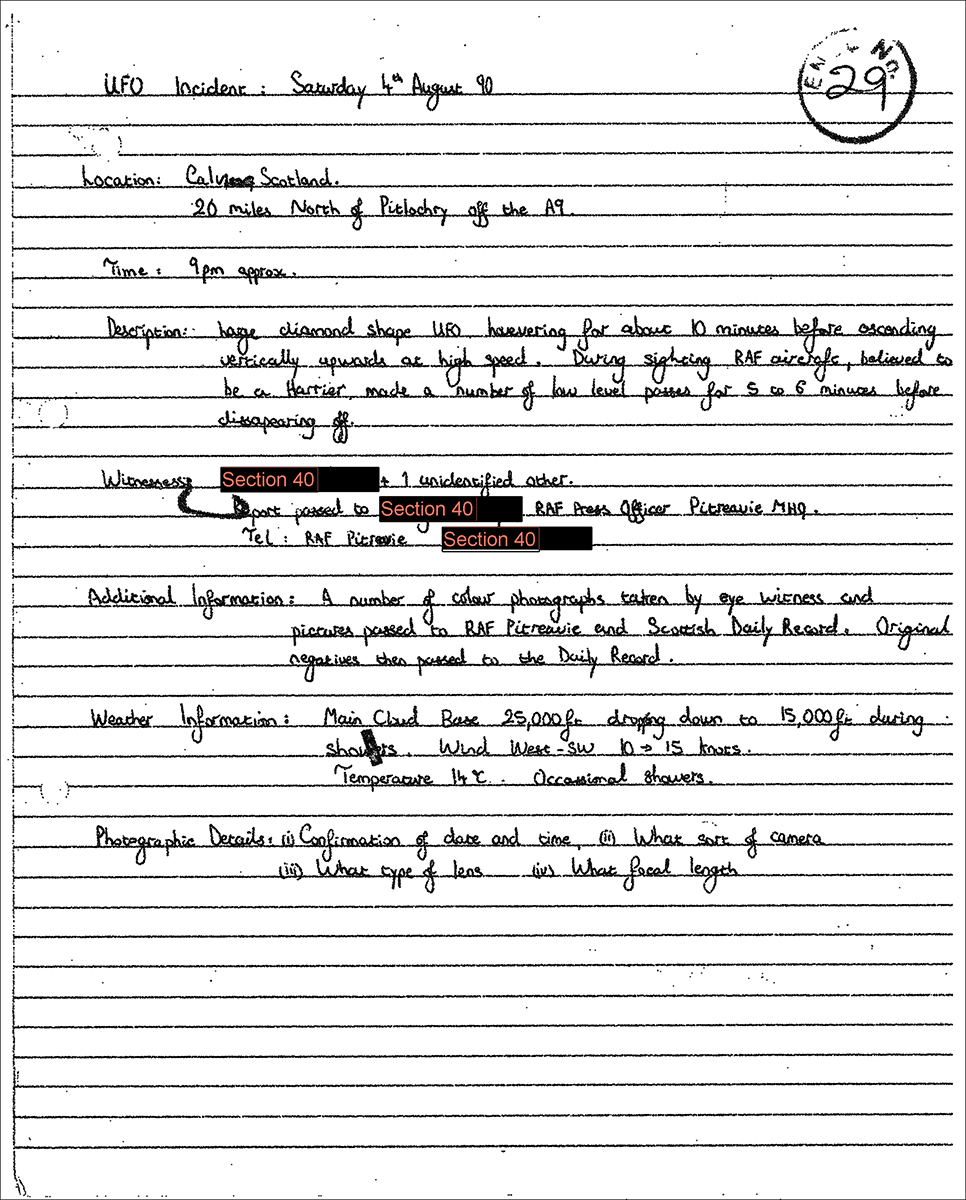 EN . . NO.
29
UFO Incident : Saturday 4th August 90
Location: Calvine Scotland.
20 miles North of Pitlochry off the A9.
Time : 9pm approx.
Description: large diamond shape UFO hovevering for about 10 minutes before ascending
vertically upwards at high speed. During sighting RAF aircraft, believed to
be a Harrier, made a number of low level passes for 5 to 6 minutes before
dissapearing off.
Witnesses Section 40 + 1 unidentified other.
Report passed to Section 40 RAF Press Officer Pitreavie MHQ.
Tel : RAF Pitreavie Section 40
Additional Information: A number of colour photographs taken by eye witness and
pictures passed to RAF Pitreavie and Scottish Daily Record. Original
negatives then passed to the Daily Record.
Weather Information: Main Cloud Base 25,000ft dropping down to 15,000ft during
showers. Wind West-SW 10 → 15 knots.
Temperature 14°C. Occassional showers.
Photographic Details: (i) Confirmation of date and time, (ii) What sort of camera
(iii) What type of lens (iv) What focal length